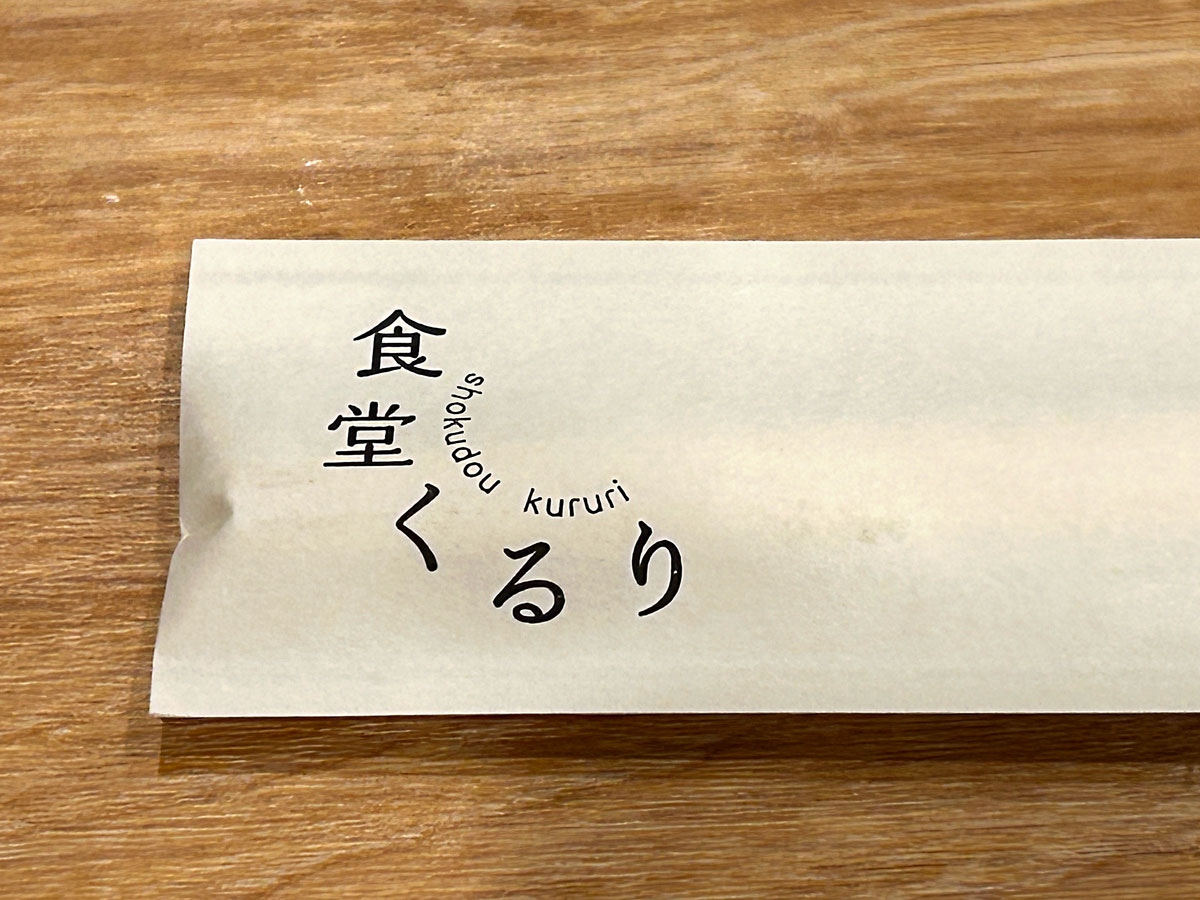 食堂くるり
shokudou kururi